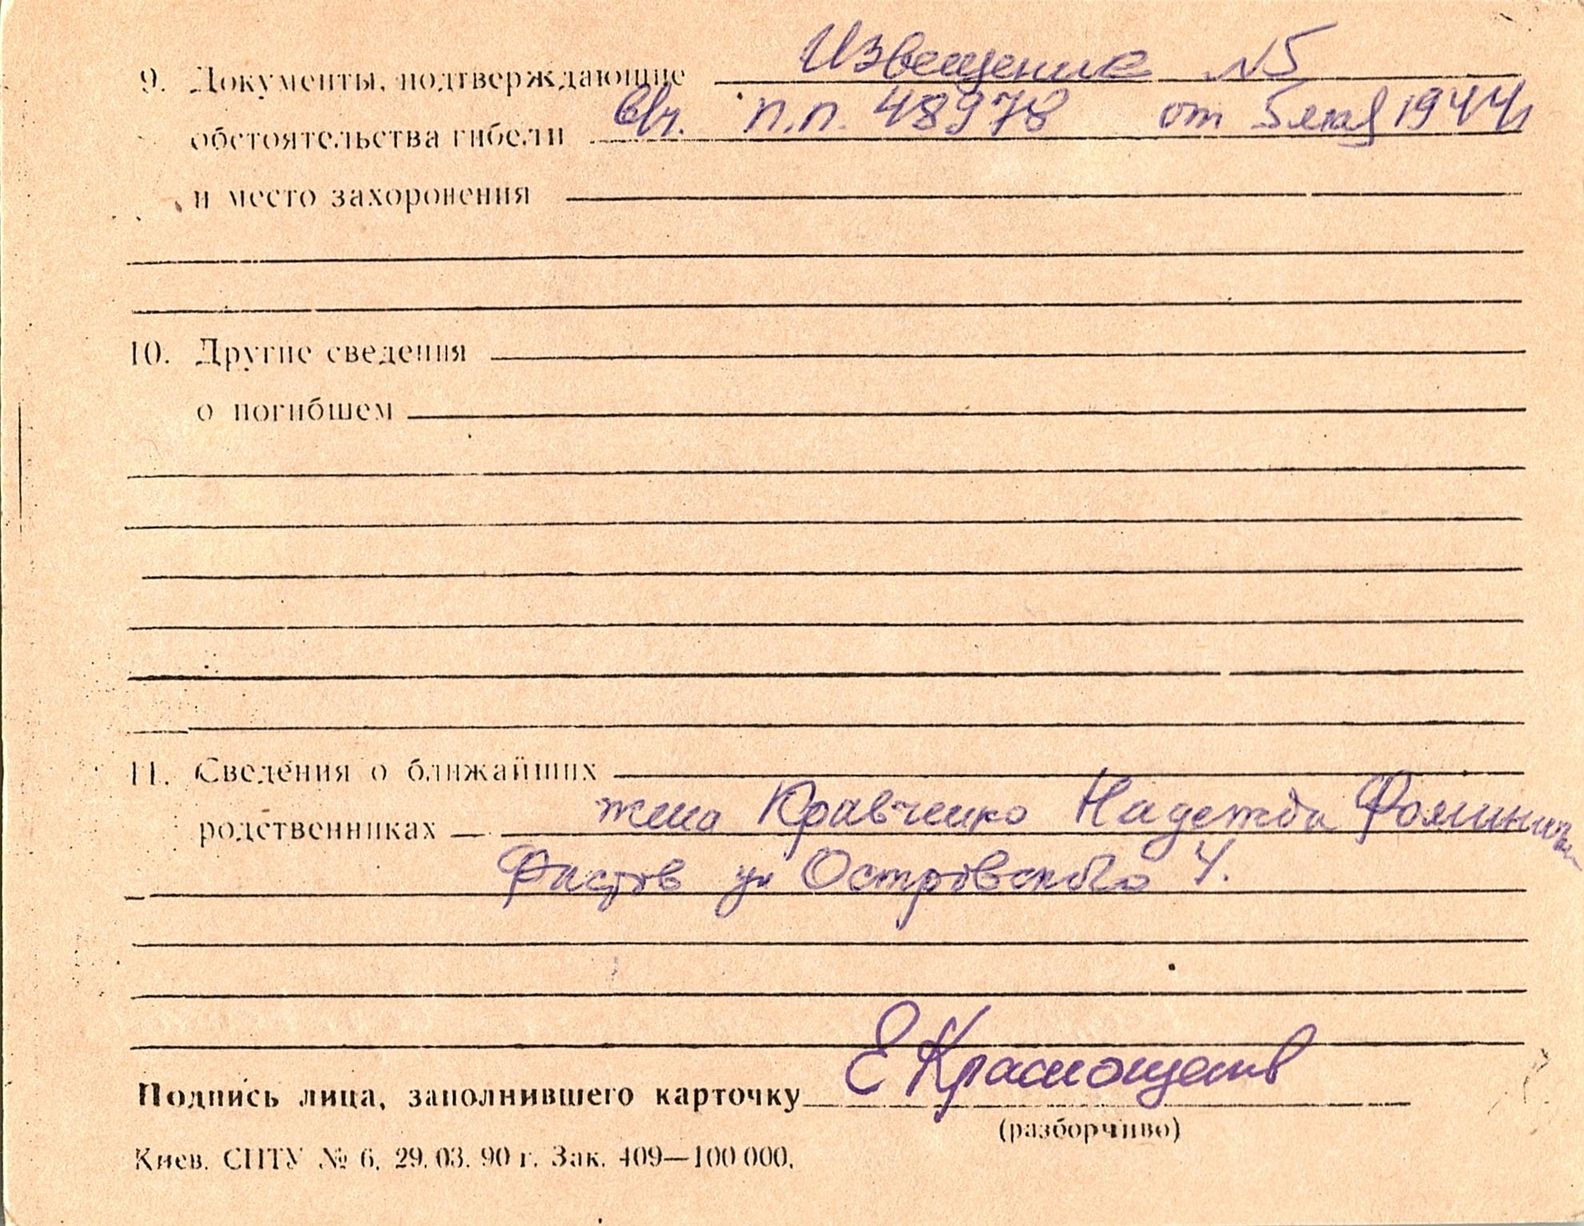 9. Документы, подтверждающие Извещение N5
обстоятельства гибели в/ч. п.п. 48978 от 5 мая 1944г
и место захоронения
10. Другие сведения
о погибшем
11. Сведения о ближайших
родственниках жена Кравченко Надежда Фоминична
Фастов ул Островского 4.
Подпись лица, заполнившего карточку Е Краснощеков
(разборчиво)
Киев. СПТУ № 6. 29.03.90 г. Зак. 409—100 000.